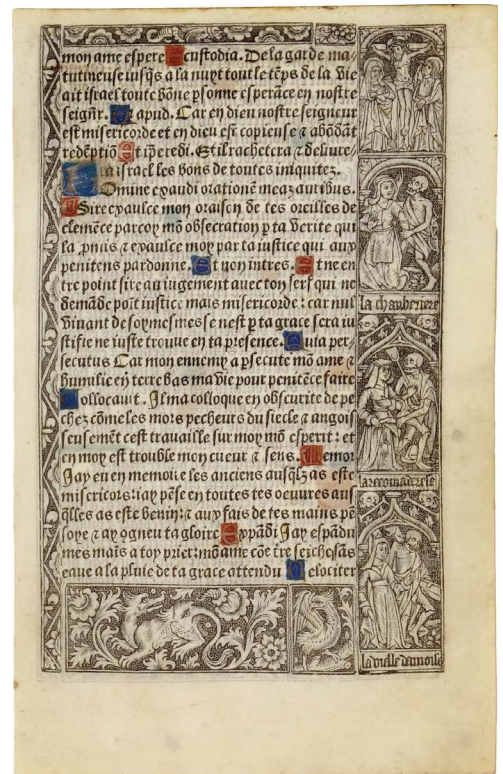 mon ame espere A custodia. De la garde ma-
tutineuse iusq̄s a la nuyt tout le tēps de la vie
ait israel toute bōne ꝑsonne esperāce en nostre
seigñr. Q apud. Car en dieu nostre seigneur
est misericorde et en dieu est copieuse ⁊ abōdāt
redēptiō Et ip̄e redi. Et il rachetera ⁊ deliure-
ra israel les bons de toutes iniquitez.
Domine exaudi orationē meaz auribus.
Sire exaulce mon oraison de tes oreilles de
clemēce parcoy mō obsecration ꝑ ta verite qui
la ꝓmis ⁊ exaulce moy par ta iustice qui aux
penitens pardonne. Et non intres. Et ne en
tre point sire au iugement auec ton serf qui ne
demāde poīt iustice mais misericorde: car nul
viuant de soymesmes se nest ꝑ ta grace sera iu
stifie ne iuste trouue en ta presence. Quia per-
secutus Car mon ennemy a ꝑsecute mō ame ⁊
humilie en terre bas ma vie pour penitēce faire
Collocauit. Il ma colloque en obscurite de pe
chez cōme les mors pecheurs du siecle ⁊ angois
seusemēt cest trauaille sur moy mō esperit: et
en moy est trouble mon cueur ⁊ sens. Memor
Jay eu en memoire les anciens ausq̄lz as este
misericors: iay pēse en toutes tes oeuures aus
q̄lles as este benin: ⁊ aux fais de tes mains pē
soye ⁊ ay ogneu ta gloire Expādi Jay espādu
mes maīs a toy prier: mō ame cōe tre seiche sās
eaue a la pluie de ta grace attendu Velociter
la chāberiere
la recōmāresse
la vielle damoise